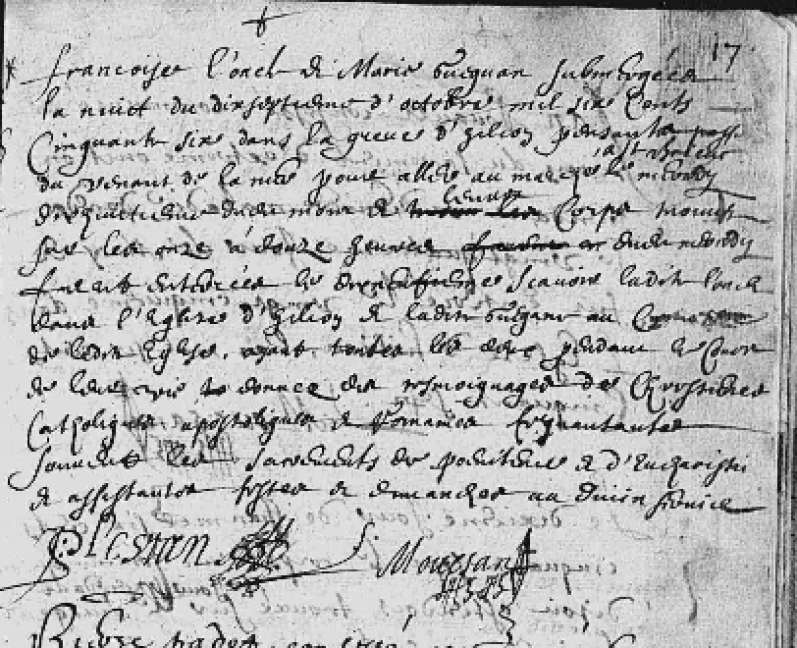 17
francoise l'onch & Marie Gueguan submergées
la nuict du dixseptieme d'octobre mil six cents
Cinquante six dans la greve d'Hilion pensants pass
a st brieuc
du venant de la nuit pour aller au marche le mercredy
dixhuitieme dudit mois & leurs Corps trouvés
sur les onze à douze heures dudit mercredy
furent enterrées le dixneufiesme scavoir ladite lonch
dans l'Eglise d'Hilion & ladite Gueguane au
de ladite Eglise, ayant toutes les deux pendant le Cours
de leur vie donné des tesmoignages de Chrestiennes
Catholiques apostoliques & Romaines frequantantes
souvent les sacrements de penitence & d'Eucharistie
& assistantes festes & dimanches au divin service
P. l'estan Moursan